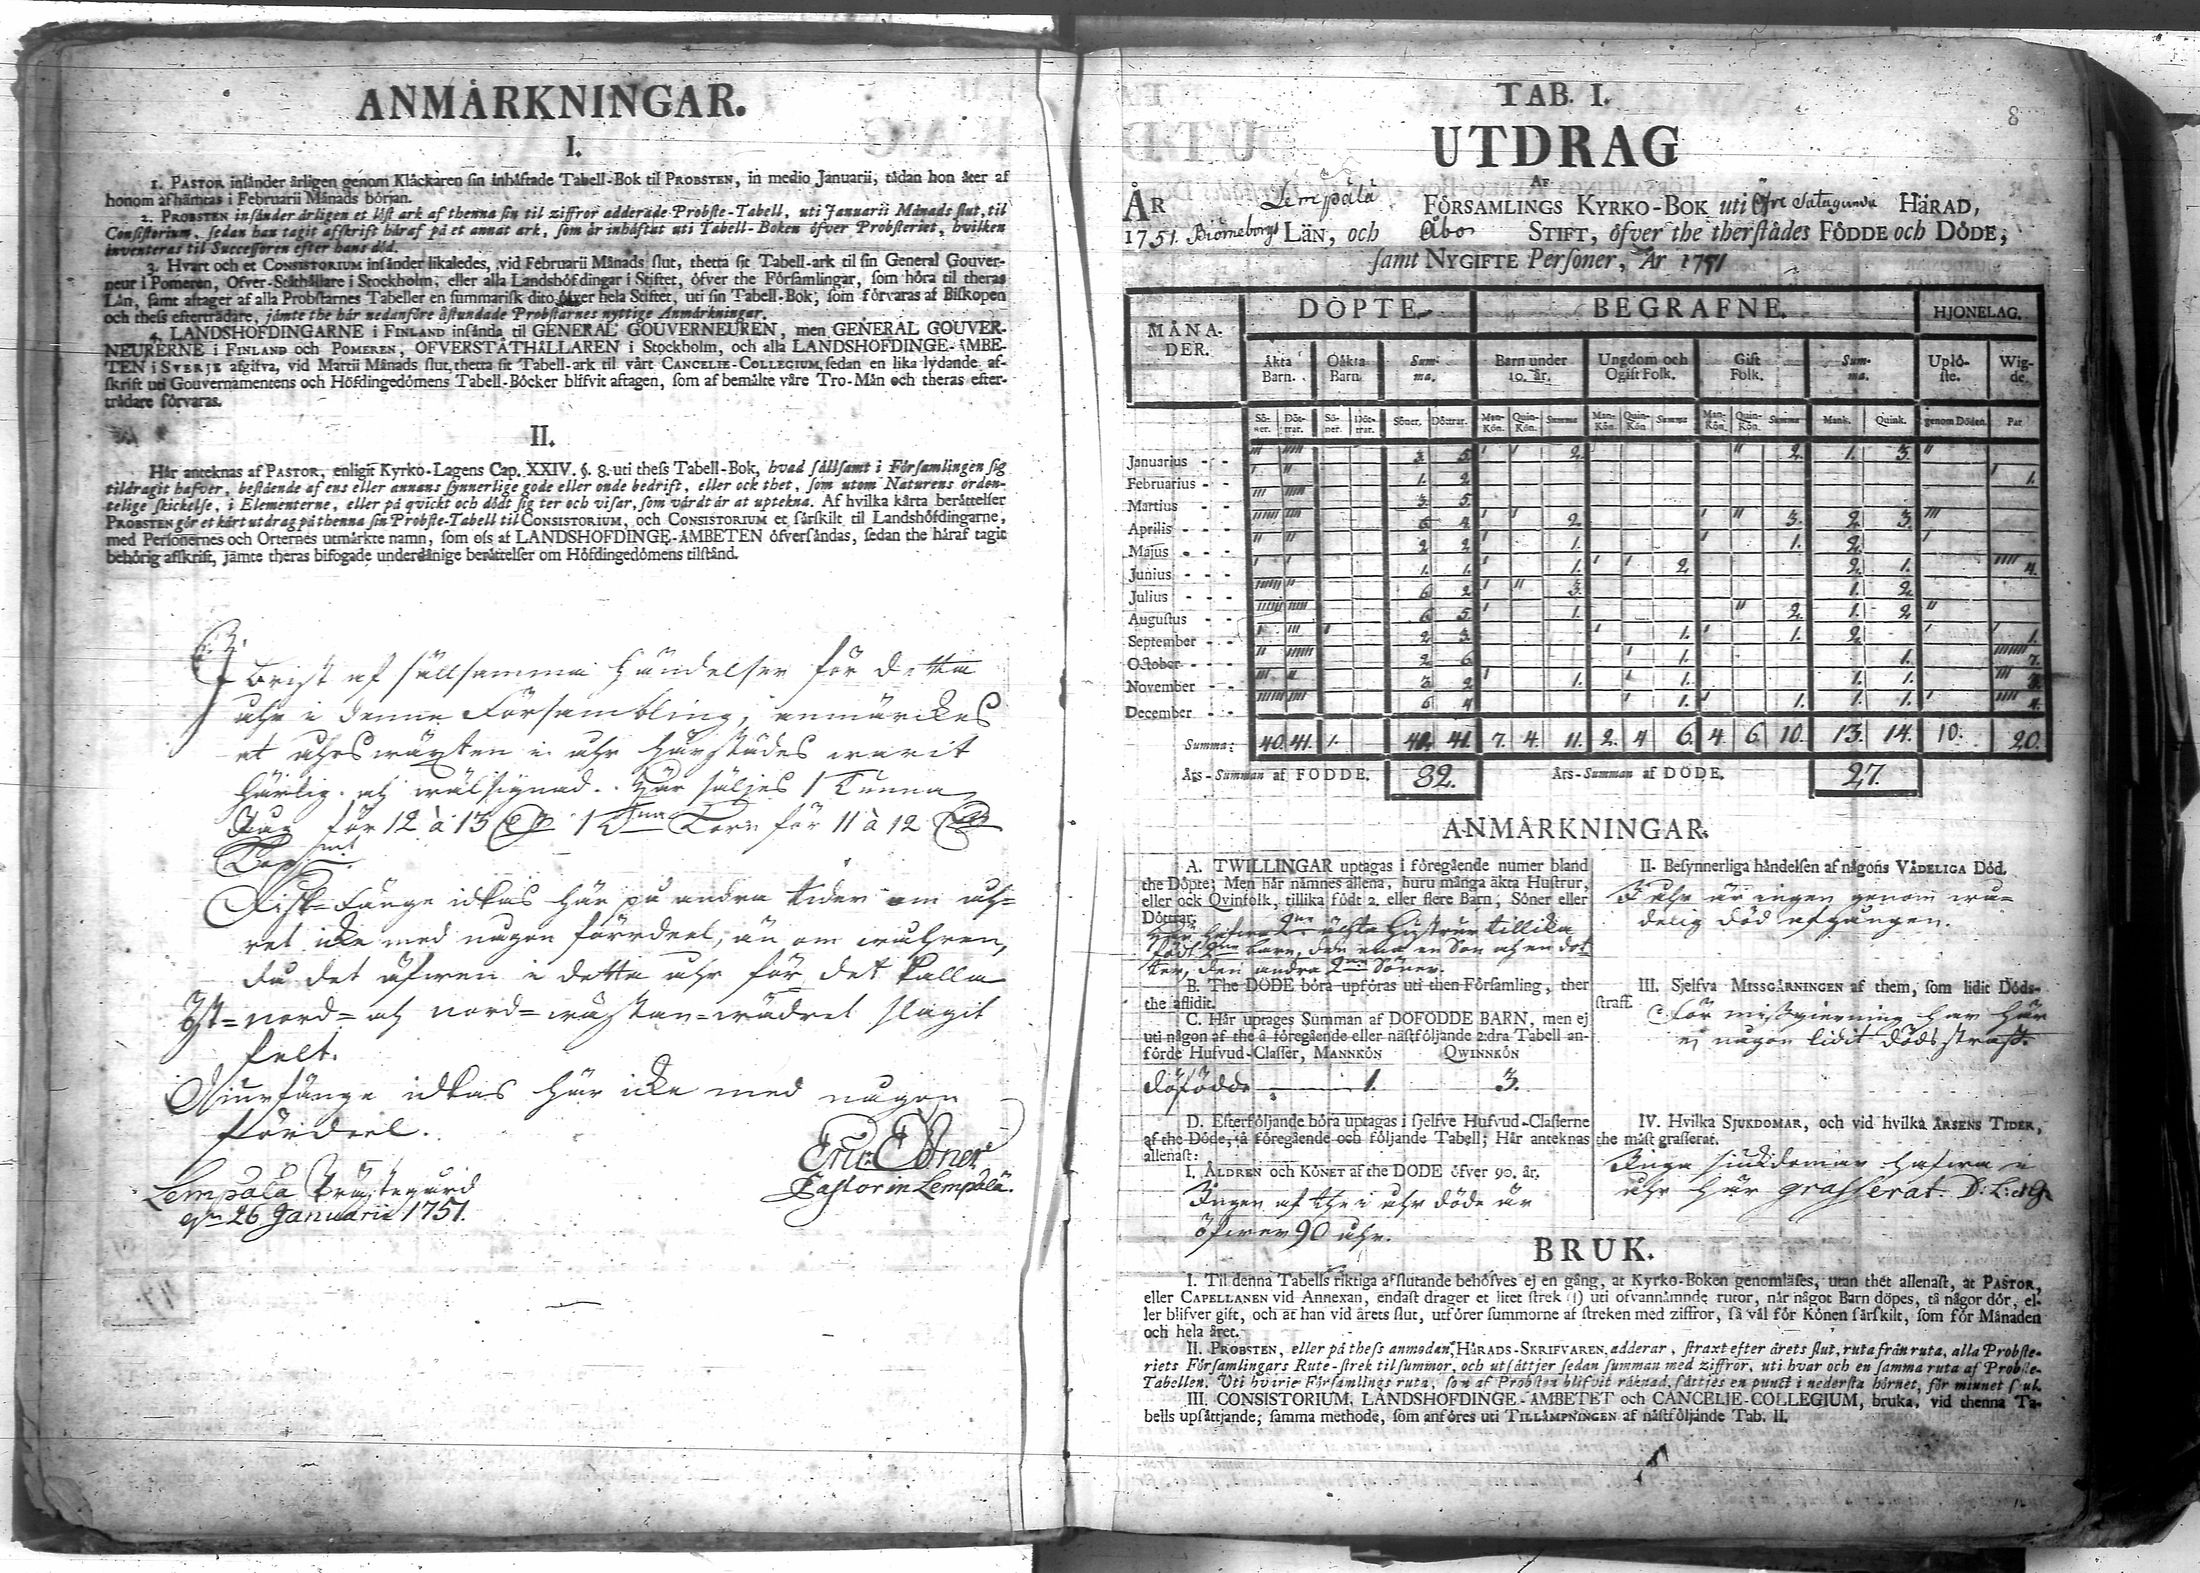 ANMÄRKNINGAR.
I.
1. PASTOR insänder årligen genom Klåckaren sin inhäftade Tabell-Bok til PROBSTEN, in medio Januarii, tådan hon åter af
honom afhämtas i Februarii Månads början.
2. PROBSTEN insänder årligen et löst ark af thenna sin til ziffror adderade Probste-Tabell, uti Januarii Månads slut, til
Consistorium, sedan han tagit afskrift häraf på et annat ark, som är inhäftat uti Tabell-Boken öfver Probsteriet, hvilken
inventeras til Successoren efter hans död.
3. Hvart och et CONSISTORIUM insänder likaledes, vid Februarii Månads slut, thetta sit Tabell-ark til sin General Gouver-
neur i Pomeren, Öfver-Ståthållare i Stockholm, eller alla Landshöfdingar i Stiftet, öfver the Församlingar, som höra til theras
Län, samt aftager af alla Probstarnes Tabeller en summarisk dito öfver hela Stiftet, uti sin Tabell-Bok, som förvaras af Biskopen
och thess efterträdare, jämte the här nedanföre åstundade Probstarnes nyttige Anmärkningar.
4. LANDSHÖFDINGARNE i FINLAND insända til GENERAL GOUVERNEUREN, men GENERAL GOUVER-
NEURERNE i FINLAND och POMEREN, ÖFVERSTÅTHÅLLAREN i Stockholm, och alla LANDSHÖFDINGE-ÄMBE-
TEN i SVERJE afgifva, vid Martii Månads slut, thetta sit Tabell-ark til vårt CANCELIE-COLLEGIUM, sedan en lika lydande af-
skrift uti Gouvernamentens och Höfdingedömens Tabell-Böcker blifvit aftagen, som af bemälte våre Tro-Män och theras efter-
trädare förvaras.
II.
Här anteknas af PASTOR, enligit Kyrko-Lagens Cap. XXIV. §. 8. uti thess Tabell-Bok, hvad sällsamt i Församlingen sig
tildragit hafver, bestående af ens eller annans synnerlige gode eller onde bedrift, eller ock thet, som utom Naturens orden-
telige skickelse, i Elementerne, eller på qvickt och dödt sig ter och visar, som värdt är at uptekna. Af hvilka kårta berättelser
PROBSTEN gör et kårt utdrag på thenna sin Probste-Tabell til CONSISTORIUM, och CONSISTORIUM et särskilt til Landshöfdingarne,
med Personernes och Orternes utmärkte namn, som oss af LANDSHÖFDINGE-ÄMBETEN öfversändas, sedan the häraf tagit
behörig afskrift, jämte theras bifogade underdånige berättelser om Höfdingedömens tilstånd.
I brist af sällsamma händelser för detta
åhr i denne Försambling, anmärckes
at åhrswäxten i åhr härstädes warit
härlig och wälsignad. Här säljes 1 Tunna
Råg för 12 à 13 1 Tna Korn för 11 à 12
Fisk-fänge idkas här på andra tider om åh-
ret icke med någon fördeel, än om wåhren,
då det äfwen i detta åhr för det kalla
Ost-nord- och nord-wästan-wädret slagit
felt.
Diurfänge idkas här icke med någon
fördeel.
Eric Edner
Pastor in Lempälä.
Lempälä Prästegård
den 26 Januarii 1751.
8
TAB. I.
UTDRAG
AF
ÅR Lempälä FÖRSAMLINGS KYRKO-BOK uti Öfre Satagunda HÄRAD,
1751. Biörneborgs LÄN, och Åbo STIFT, öfver the therstädes FÖDDE och DÖDE,
samt NYGIFTE Personer, År 1751
MÅNA-DER. DÖPTE BEGRAFNE. HJONELAG.
Äkta Barn. Oäkta Barn. Summa. Barn under 10. år. Ungdom och Ogift Folk. Gift Folk. Summa. Uplöste. Wigde.
Söner. Döttrar. Söner. Döttrar. Söner. Döttrar. Man-Kön. Quin-Kön. Summa Man-Kön. Quin-Kön. Summa Man-Kön. Quin-Kön. Summa Mank. Quink. genom Döden. Par
Januarius - - 3. 5. 2. 2. 1. 3.
Februarius - - 1. 2. 1.
Martius - - 3. 5.
Aprilis - - 6 4. 2. 3. 2. 3.
Majus - - 2 2. 1. 1. 2.
Junius - - 1. 1. 1. 2 2. 1. 4.
Julius - - 6 2. 3. 1. 2.
Augustus - - 6 5. 1. 2. 1. 2
September - - 2 3. 1. 1. 2. 1.
October - - 2 6. 1. 1. 7.
November - - 3 2. 1. 1. 1. 1. 3.
December - - 6 4 1. 1. 1. 1. 4.
Summa: 40. 41. 1. 41. 41. 7. 4. 11. 2. 4 6. 4 6. 10. 13. 14. 10. 20.
Års-Summan af FÖDDE. 82. Års-Summan af DÖDE. 27.
ANMÄRKNINGAR.
A. TWILLINGAR uptagas i föregående numer bland
the Döpte; Men här nämnes allena, huru många äkta Hustrur,
eller ock Qvinfolk, tillika födt 2. eller flere Barn, Söner eller
Döttrar.
Här hafwa 2ne ächta Hustrur tillika
födt 2ne barn, den ena en Son och en dot-
ter, den andra 2ne Söner.
B. The DÖDE böra upföras uti then Församling, ther
the aflidit.
C. Här uptages Summan af DÖFÖDDE BARN, men ej
uti någon af the å föregående eller nästföljande 2:dra Tabell an-
förde Hufvud-Classer, MANNKÖN QWINNKÖN
döfödde 1. 3.
D. Efterföljande böra uptagas i sjelfve Hufvud-Classerne
af the Döde, å föregående och följande Tabell; Här anteknas
allenast:
I. ÅLDREN och KÖNET af the DÖDE öfver 90. år.
Ingen af the i åhr döde är
öfwer 90 åhr.
II. Besynnerliga händelsen af någons VÅDELIGA Död.
I åhr är ingen genom wå-
delig död afgången.
III. Sjelfva MISSGÄRNINGEN af them, som lidit Döds-
straff.
För missgierning har här
ej någon lidit dödsstraff.
IV. Hvilka SJUKDOMAR, och vid hvilka ÅRSENS TIDER,
the mäst grasserat.
Inga siuckdomar hafwa i
åhr här grasserat. D: L: et Gr
BRUK.
I. Til denna Tabells riktiga afslutande behöfves ej en gång, at Kyrko-Boken genomläses, utan thet allenast, at PASTOR,
eller CAPELLANEN vid Annexan, endast drager et litet strek (1) uti ofvannämnde rutor, når något Barn döpes, tå någor dör, el-
ler blifver gift, och at han vid årets slut, utförer summorne af streken med ziffror, så väl för Könen särskilt, som för Månaden
och hela året.
II. PROBSTEN, eller på thess anmodan, HÄRADS-SKRIFVAREN, adderar, straxt efter årets slut, ruta från ruta, alla Probste-
riets Församlingars Rute-strek til summor, och utsättjer sedan summan med ziffror, uti hvar och en samma ruta af Probste-
Tabellen. Uti hvirje Församlings ruta, som af Probsten blifvit räknad, sättjes en punct i nedersta hörnet, för minnet skul.
III. CONSISTORIUM, LANDSHÖFDINGE-ÄMBETET och CANCELIE-COLLEGIUM, bruka, vid thenna Ta-
bells upsättjande, samma methode, som anföres uti TILLÄMPNINGEN af nästföljande Tab. II.